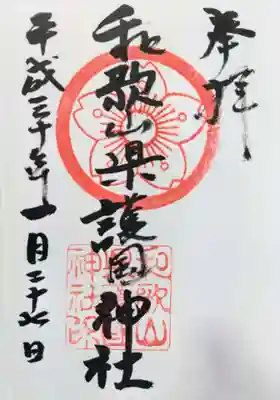 奉拝
和歌山県護国神社
平成三十年一月二十七日
和歌山
護国
神社印